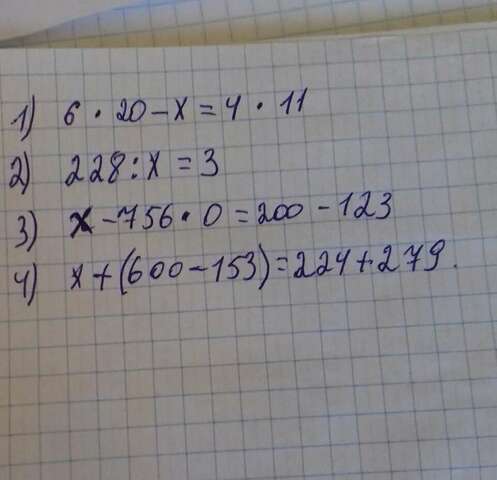 1) 6 · 20 - x = 4 · 11
2) 228 : x = 3
3) x - 756 · 0 = 200 - 123
4) x + (600 - 153) = 224 + 279.